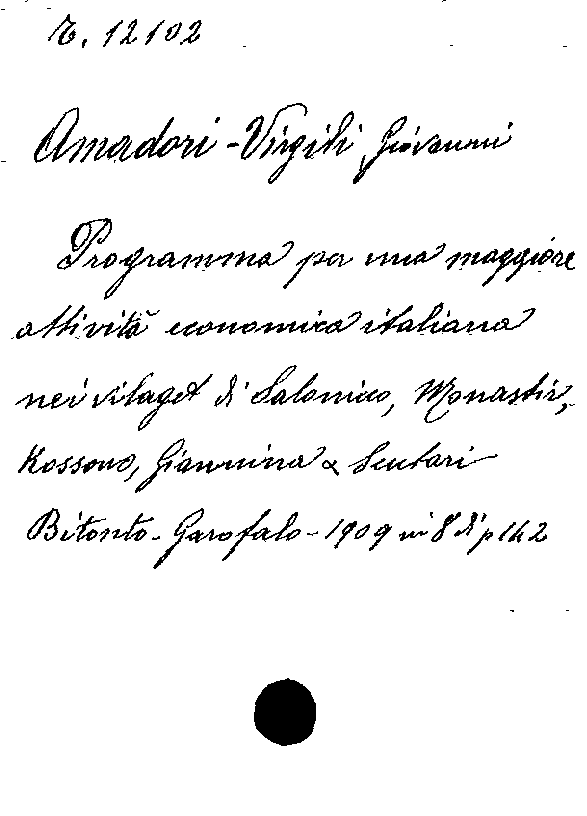 T. 12102
Amadori-Virgili, Giovanni
Programma per una maggiore
attività economica italiana
nei vilaget di Salonicco, Monastir,
Kossovo, Giannina e Scutari
Bitonto - Garofalo - 1909 in 8° di p 142